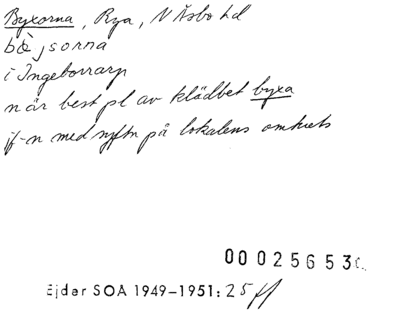 Byxorna, Rya, N Åsbo hd
bòjsorna
i Ingeborrarp
n är best pl av klädbet byxa
jf-n med syftn på lokalens omkrets
00025653
Ejder SOÅ 1949-1951: 25 ff